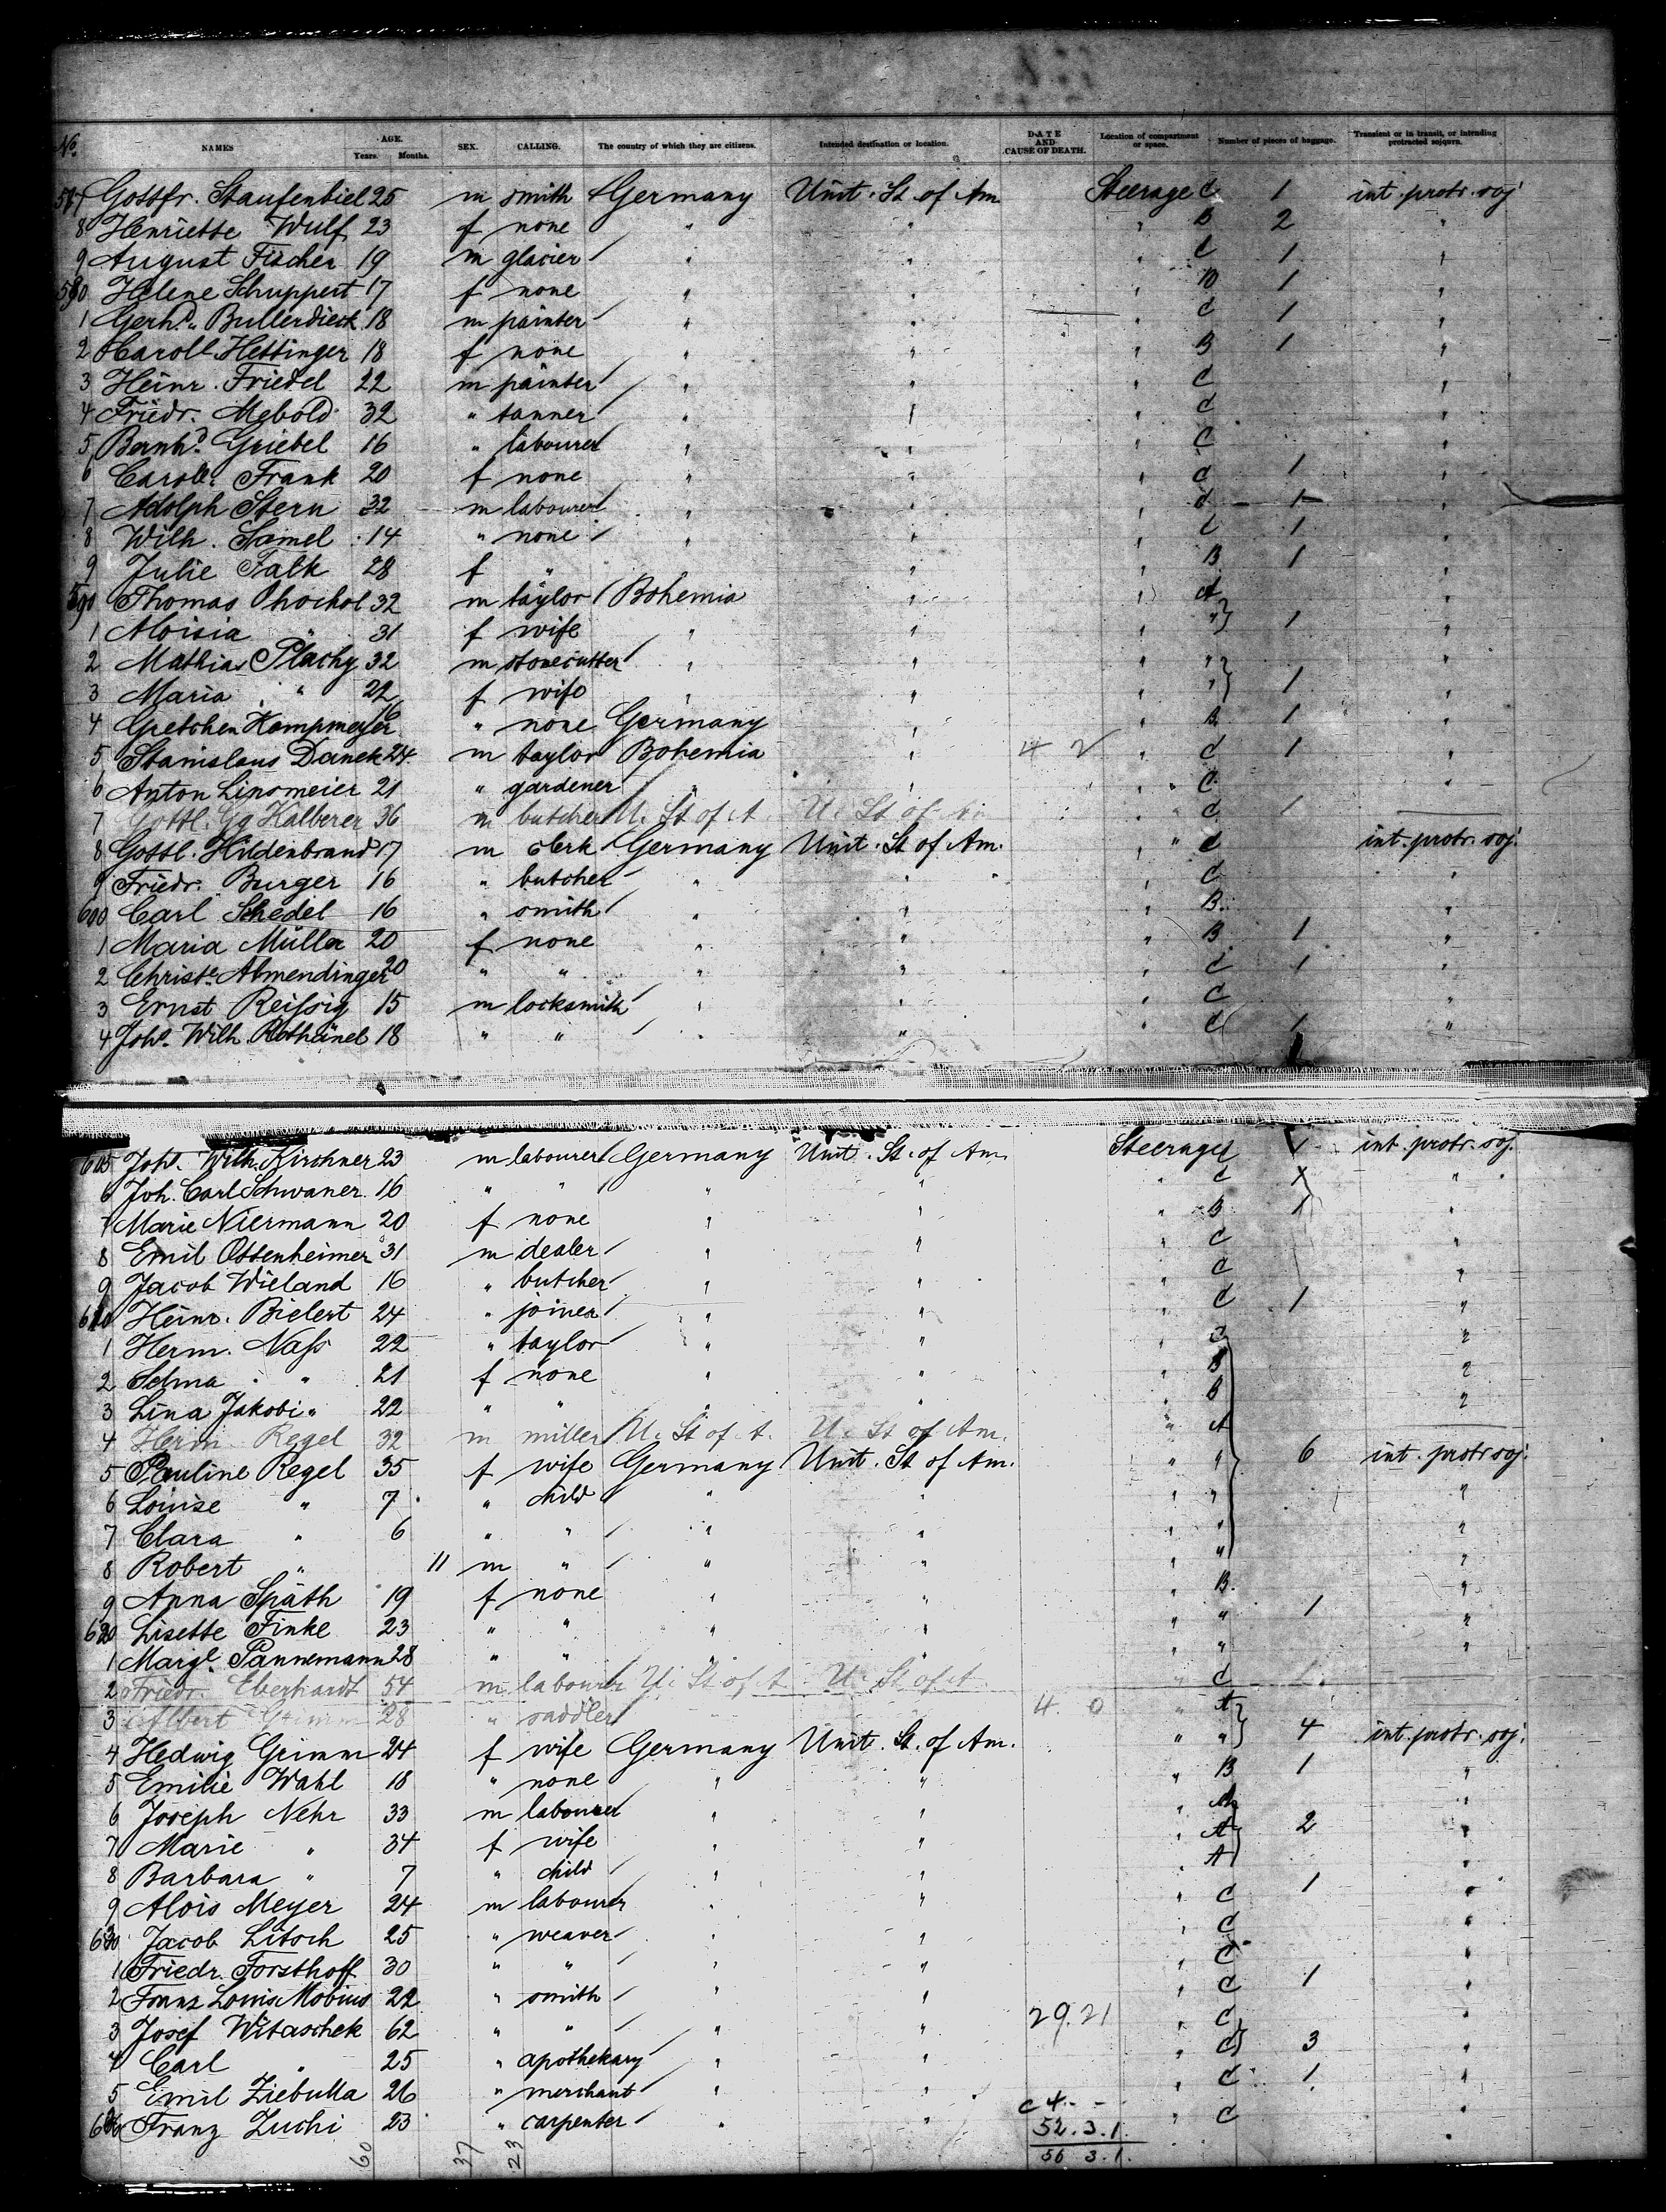 No. NAMES AGE. Years. Months. SEX. CALLING. The country of which they are citizens. Intended destination or location. DATE AND CAUSE OF DEATH. Location of compartment or space. Number of pieces of baggage. Transient or in transit, or intending protracted sojourn.
577 Gottfr. Staufenbiel 25 m smith Germany Unit. St. of Am. Steerage C 1 int. protr. soj.
8 Henriette Wulf 23 f none " " " B 2 "
9 August Fischer 19 m glacier " " " C 1 "
580 Helene Schuppert 17 f none " " " B 1 "
1 Gerhd. Bullerdieck 18 m painter " " " C 1 "
2 Carole. Hettinger 18 f none " " " B 1 "
3 Heinr. Friedel 22 m painter " " " C "
4 Friedr. Mebold 32 " tanner " " " C "
5 Bernhd. Griebel 16 " labourer " " " C "
6 Carole. Frank 20 f none " " " C 1 "
7 Adolph Stern 32 m labourer " " " C 1 "
8 Wilh. Samel 14 " none " " " C 1 "
9 Julie Falk 28 f " " " " B 1 "
590 Thomas Prochol 32 m taylor Bohemia " " A "
1 Aloisia " 31 f wife " " " " 1 "
2 Mathias Plachy 32 m stonecutter " " " " "
3 Maria " 22 f wife " " " " 1 "
4 Gretchen Kempmeyer 16 " none Germany " " B 1 "
5 Stanislaus Danek 24 m taylor Bohemia " 4 2 " C 1 "
6 Anton Linsmeier 21 " gardener " " " C "
7 Gottl. Gg Kalberer 36 m butcher U. St of A. U. St of Am " C 1
8 Gottl. Hildenbrand 17 m clerk Germany Unit. St of Am. " C int. protr. soj.
9 Friedr. Burger 16 " butcher " " " C "
600 Carl Schedel 16 " smith " " " B "
1 Maria Müller 20 f none " " " B 1 "
2 Christe. Almendinger 20 " " " " " C 1 "
3 Ernst Reißig 15 m locksmith " " " C "
4 Johs. Wilh. Rothänel 18 " " " " " C 1 "
605 Johs. Wilh. Kirchner 23 m labourer Germany Unit. St. of Am. Steerage C 1 int. protr. soj.
6 Joh. Carl Schwaner 16 " " " " " C 1 "
7 Marie Niermann 20 f none " " " B 1 "
8 Emil Ottenheimer 31 m dealer " " " C "
9 Jacob Wieland 16 " butcher " " " C "
610 Heinr. Bielert 24 " joiner " " " C 1 "
1 Herm. Naß 22 " taylor " " " C "
2 Selma " 21 f none " " " B "
3 Lina Jakobi " 22 " " " " " B "
4 Herm. Regel 32 m miller U. St of A. U. St of Am. " A
5 Pauline Regel 35 f wife Germany Unit. St of Am. " " 6 int. protr. soj.
6 Louise " 7 " child " " " " "
7 Clara " 6 " " " " " " "
8 Robert " 11 m " " " " " "
9 Anna Späth 19 f none " " " B. "
620 Lisette Finke 23 " " " " " " 1 "
1 Marge. Pannemann 28 " " " " " " "
2 Friedr. Eberhardt 54 m labourer U. St of A U. St of A " C 1
3 Albert Grimm 28 " saddler 4. 0 " A
4 Hedwig Grimm 24 f wife Germany Unit. St. of Am. " " 4 int. protr. soj.
5 Emilie Wahl 18 " none " " " B 1 "
6 Joseph Nehr 33 m labourer " " " A "
7 Marie " 34 f wife " " " A 2 "
8 Barbara " 7 " child " " " A "
9 Alois Meyer 24 m labourer " " " C 1 "
630 Jacob Litsch 25 " weaver " " " C "
1 Friedr. Forsthoff 30 " " " " " C "
2 Franz Louis Mobius 22 " smith " " " C 1 "
3 Josef Witaschek 62 " " " " 29. 21 " C "
4 Carl " 25 " apothekary " " " C 3 "
5 Emil Ziebulla 26 " merchant " " " C 1 "
636 Franz Zuchi 23 " carpenter " " " C "
c 4. - -
52. 3. 1.
56 3. 1.
60 37 23